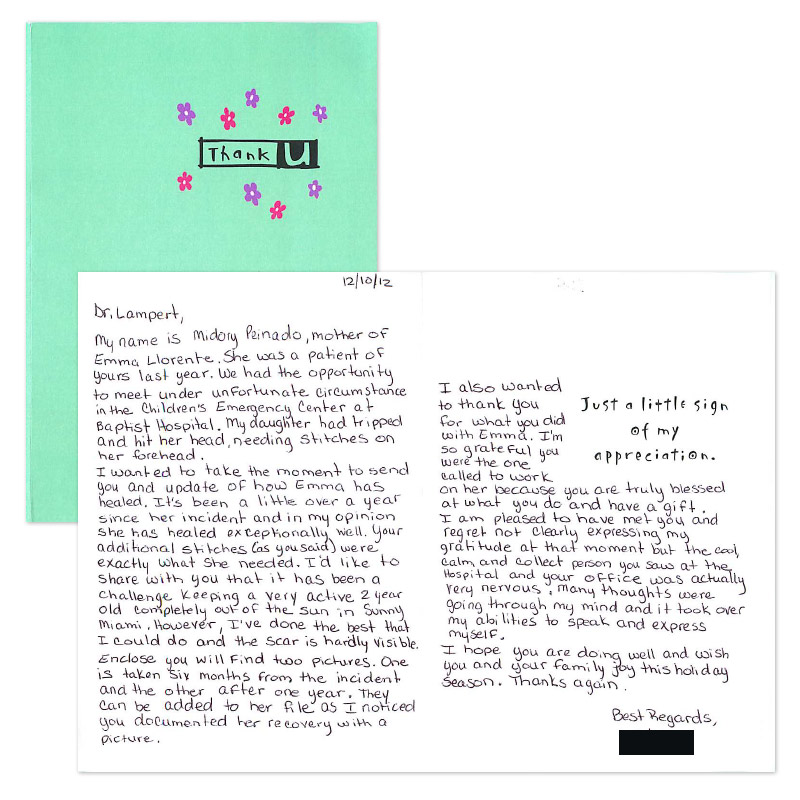 Thank U
12/10/12
Dr. Lampert,
My name is Midory Peinado, mother of
Emma Llorente. She was a patient of
yours last year. We had the opportunity
to meet under unfortunate circumstance
in the Children's Emergency Center at
Baptist Hospital. My daughter had tripped
and hit her head, needing stitches on
her forehead.
I wanted to take the moment to send
you and update of how Emma has
healed. It's been a little over a year
since her incident and in my opinion
she has healed exceptionally well. Your
additional stitches (as you said) were
exactly what she needed. I'd like to
share with you that it has been a
challenge keeping a very active 2 year
old completely out of the sun in Sunny
Miami. However, I've done the best that
I could do and the scar is hardly visible.
Enclose you will find two pictures. One
is taken six months from the incident
and the other after one year. They
can be added to her file as I noticed
you documented her recovery with a
picture.
I also wanted
to thank you
for what you did
with Emma. I'm
so grateful you
were the one
called to work
on her because you are truly blessed
at what you do and have a gift.
I am pleased to have met you and
regret not clearly expressing my
gratitude at that moment but the cool,
calm and collect person you saw at the
Hospital and your office was actually
very nervous. Many thoughts were
going through my mind and it took over
my abilities to speak and express
myself.
I hope you are doing well and wish
you and your family joy this holiday
season. Thanks again.
Just a little sign
of my
appreciation.
Best Regards,